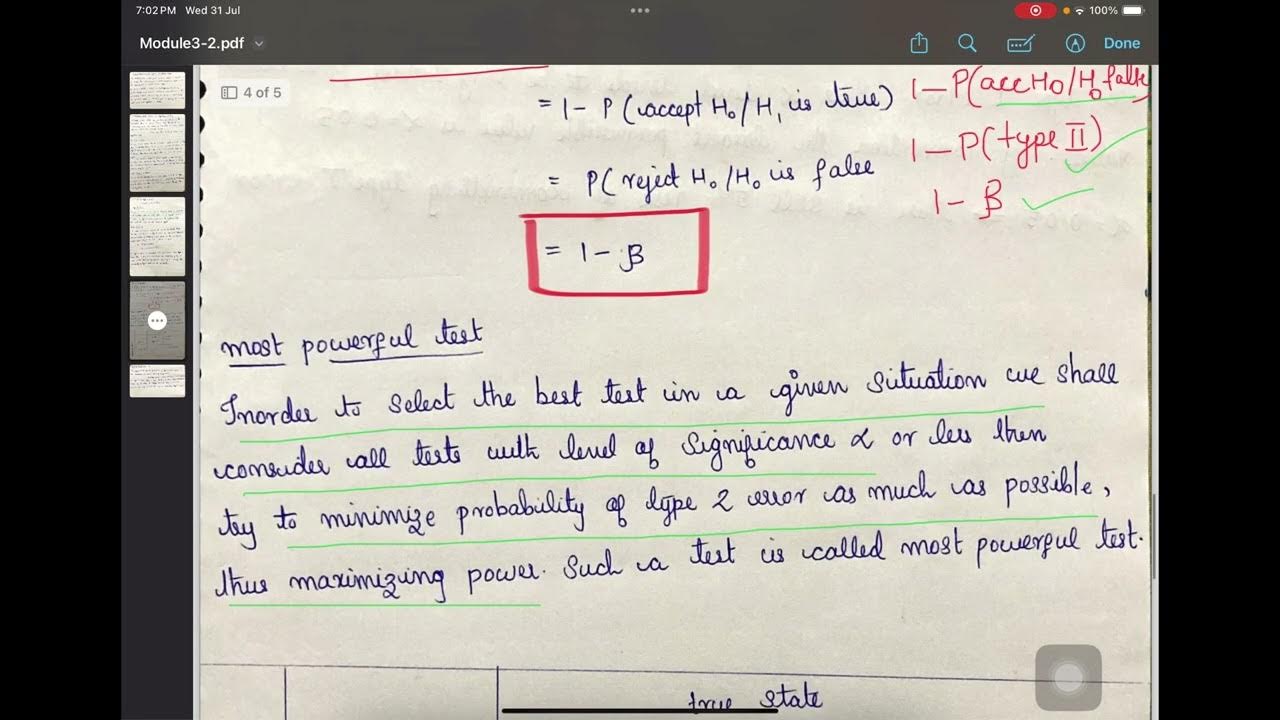 7:02 PM Wed 31 Jul
100%
Module3-2.pdf
Done
4 of 5
= 1 - P (accept H₀/H₁ is true)
= P( reject H₀/H₀ is false
= 1 - β
1 - P(acc H₀/H₀ false)
1 - P(type II)
1 - β
most powerful test
Inorder to select the best test in a given situation we shall
consider all tests with level of significance α or less then
try to minimize probability of type 2 error as much as possible,
thus maximizing power. Such a test is called most powerful test.
true state